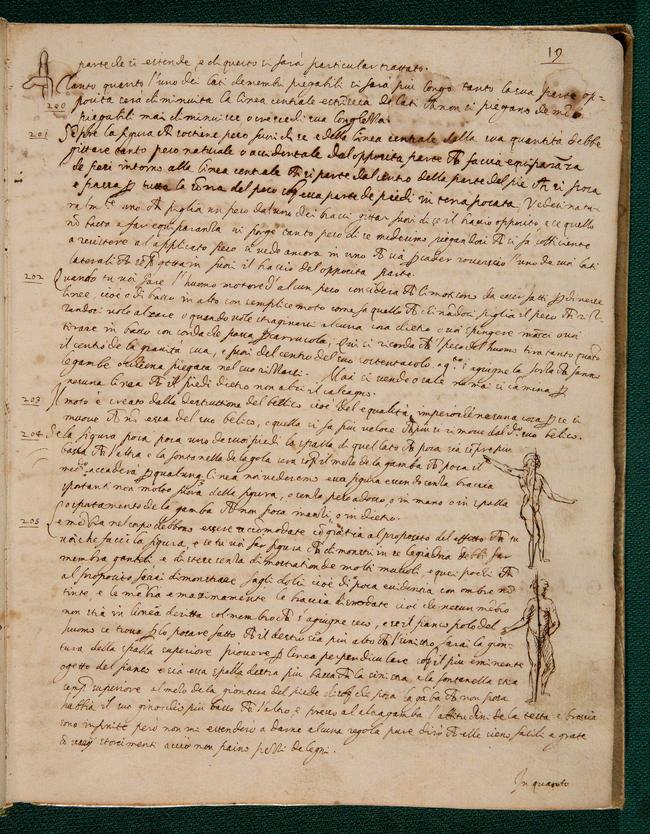 19
parte de si estende e di questo si farà particular trattato.
Tanto quanto l'uno dei lati de membri piegabili si farà più longo tanto la sua parte op-
200
posita sera diminuita la linea centrale de lati non si piegano
piegabili mai diminuisce o cresce di sua longhezza.
201
Sempre la figura che sostiene peso fuori di se e della linea centrale della sua quantità debbe
gittare tanto peso naturale o accidentale dal opposita parte che faccia
de pesi intorno alla linea centrale che si parte dal centro della parte del piè che si posa
e passa per tutta la soma del peso sopra essa parte de piedi in terra posata. Vedesi natu-
ralmente uno che piglia un peso dal uno dei bracci gittar fuori di se il braccio opposito, e se quello
non basta a far vi porge tanto peso di se medesimo piegandosi che si fa sofficiente
a resistere al applicato peso si vede ancora in uno che sia per cader l'uno de suoi lati
laterali che sempre getta in fuori il braccio del opposita parte.
202
Quando tu vuoi fare l'huomo motore d'alcun peso considera che li moti sono da esser fatti per diverse
linee, cioè o di basso in alto con semplice moto come fa quello che chinandosi piglia il peso che
vole alzare o quando vole strascinarsi alcuna cosa dietro o voi spingere
tirare in basso con corda che passa per carrucola, qui si ricorda che l'peso del huomo tira tanto quanto
il centro de la gravita sua, e fuori del centro del suo sostentacolo a questo s'agiugne la forza che fanno
le gambe e schiena piegata nel suo Mai si scende o sale ne mai si camina per
nessuna linea che il piedi dietro non alzi il calcagno.
203
Il moto è creato dalla destruttione del cioè del equalità nesuna cosa per se si
muove che non esca del suo belico, e quella si fa più veloce che più si rimove dal detto suo belico.
204
Se la figura posa sopra uno de suoi piedi la spalla di quel lato che posa sia sempre più
bassa che l'altra e la fontanella de la gola sera sopra il mezo de la gamba che posa il
medesimo accaderà per qualunque linea noi vederemo essa figura essendo senza braccia
sportanti non molto fuora della figura, o senza peso adosso, o in mano o in spalla
o sportamento de la gamba che non posa inanti, o in dietro.
205
e membra nel corpo debbono essere accomodate con gratia al proposito del effetto che tu
voi che facci la figura, e se tu voi far figura che dimostri in se legiadria debbi far
membra gentili e distese senza dimostratione de molti muscoli, e quei pochi che
al proposito farai dimostrare fagli dolci cioè di poca evidentia con ombre non
tinte, e le membra massimamente le braccia cioè che nesun membro
non stia in linea diritta col membro che s'agiugne seco, e se il fianco polo del
huomo se trova per lo posare fatto che il destro sia più alto che l'sinistro farai la gion-
tura della spalla superiore piovere per linea perpendiculare sopra il più eminente
ogetto del fianco e sia essa spalla destra più bassa che la sinistra, e la fontanella stia
sempre superiore al mezo de la giontura del piede di sopra che posa la gamba che non posa
habbia il suo ginochio più basso che l'altro, e presso al altra gamba l'attitudini de la testa e braccia
sono infinite però non mi estenderò a darne alcuna regola pure dirò che elle sieno facili e grate
con varij storcimenti non paino pezzi de legni.
In quanto